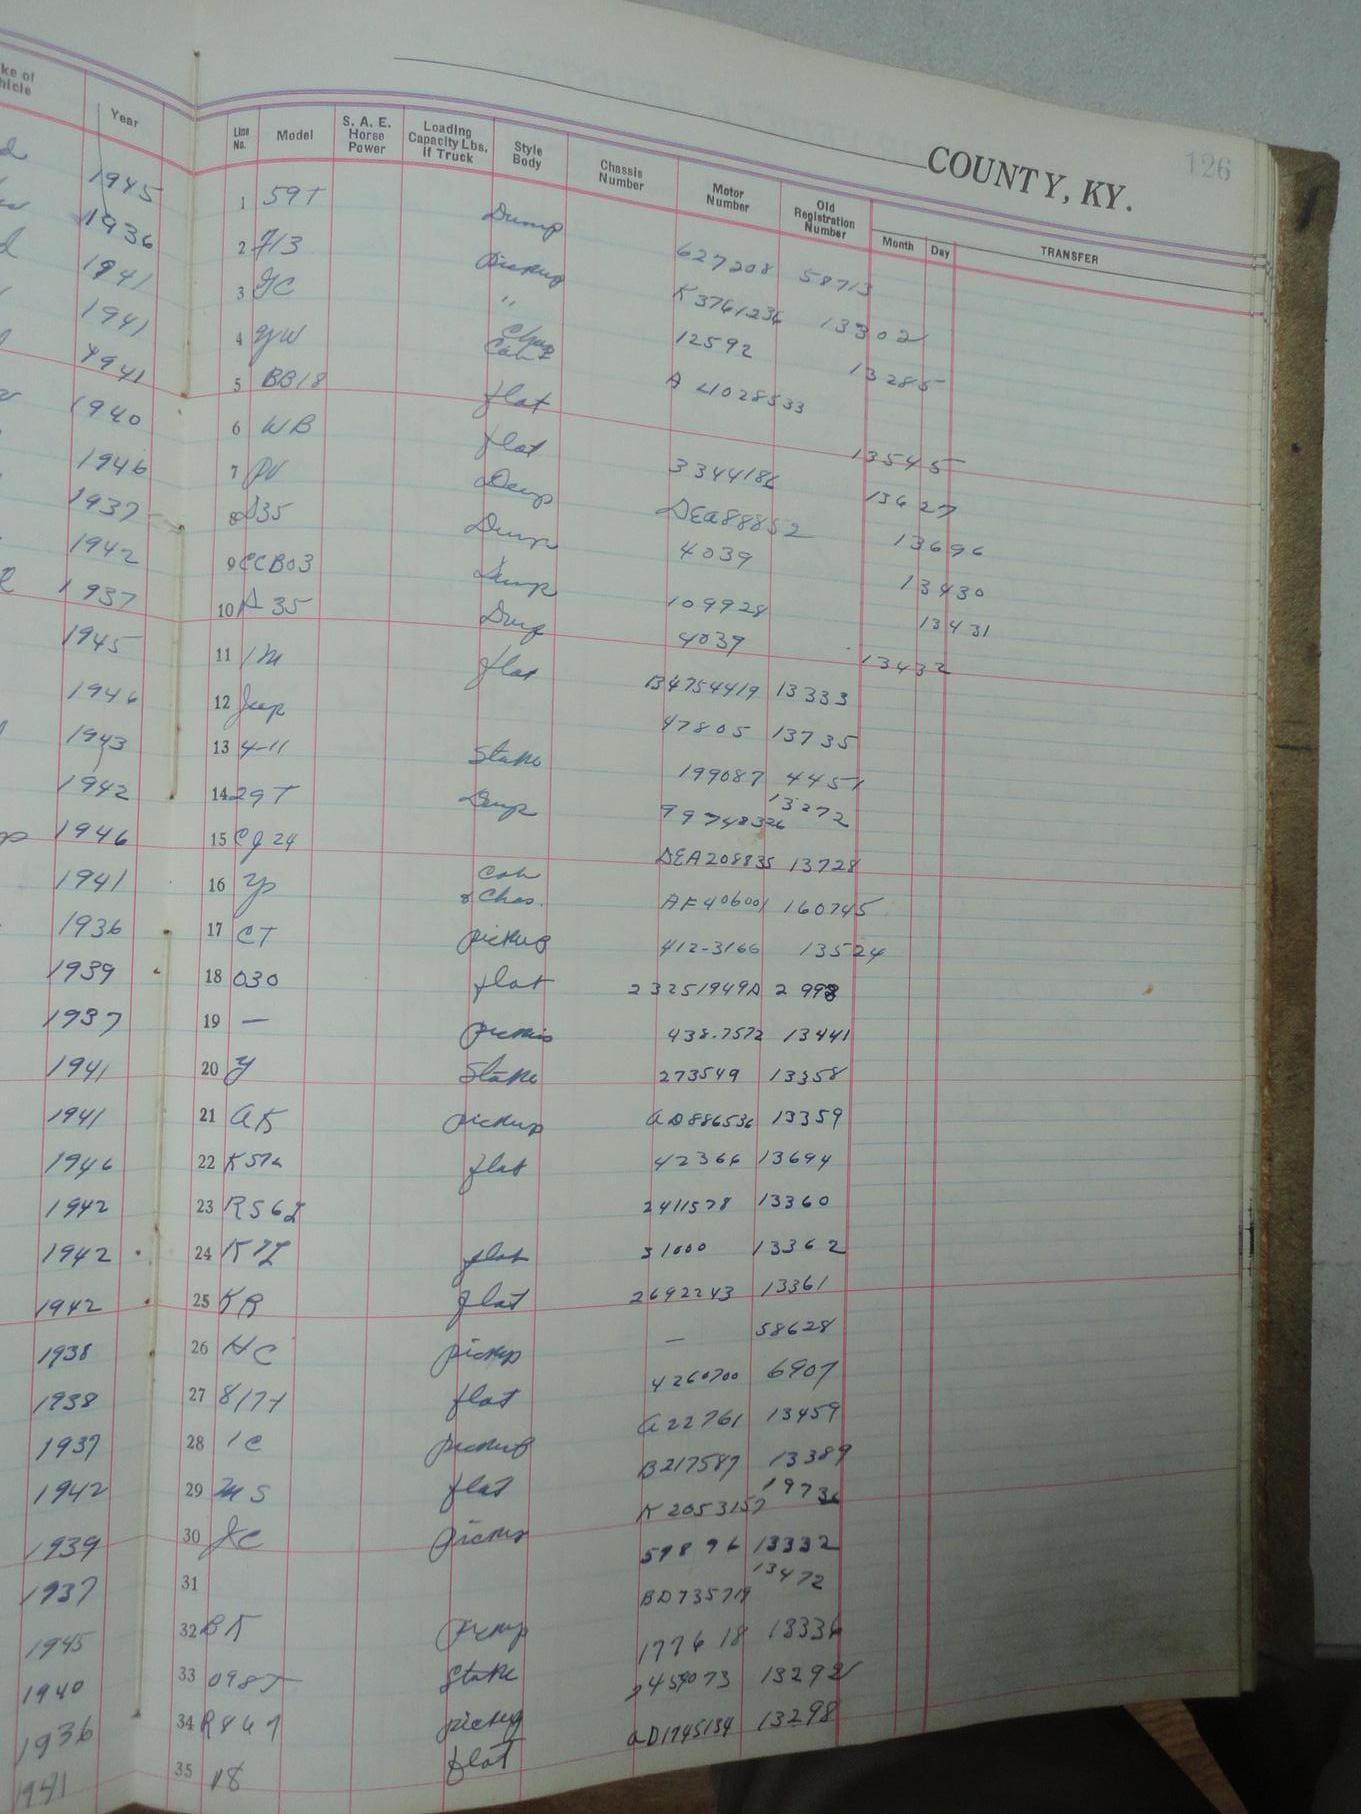 COUNTY, KY. 126
Year
Line No. Model S. A. E. Horse Power Loading Capacity Lbs. if Truck Style Body Chassis Number Motor Number Old Registration Number Month Day TRANSFER
1945 1 59T Dump 627208 58713
1936 2 713 Pickup K3761236 13302
1941 3 " 12592 13285
1941 4 YW Chas & Cab A 41028533
1941 5 BB18 flat 13545
1940 6 WB flat 3344186 13627
1946 7 Dump DEA88852 13696
1937 8 D35 Dump 4039 13430
1942 9 CCB03 Dump 109928 13431
1937 10 D 35 Dump 4039 13432
1945 11 1M flat B4754419 13333
1946 12 Jeep 47805 13735
1943 13 4-11 Stake 199087 4451
1942 14 29T Dump 99748326 13272
1946 15 CJ 24 DEA208835 13728
1941 16 Cab & Chas. AF406001 160745
1936 17 CT pickup 412-3166 13524
1939 18 030 flat 23251949A 2998
1937 19 — pickup 438.7572 13441
1941 20 Y Stake 273549 13358
1941 21 AK pickup AD886536 13359
1946 22 flat 42366 13694
1942 23 RS62 2411578 13360
1942 24 flat 31000 13362
1942 25 KR flat 2692243 13361
1938 26 HC pickup — 58628
1938 27 817T flat 4260700 6907
1937 28 1C pickup A22761 13459
1942 29 MS flat B217587 13389
1939 30 JC pickup K2053157 19736
1937 31 59896 13332
1945 32 BK pickup BD735719 13472
1940 33 098T Stake 177618 13336
1936 34 pickup 13292
1941 35 18 flat AD1745134 13298